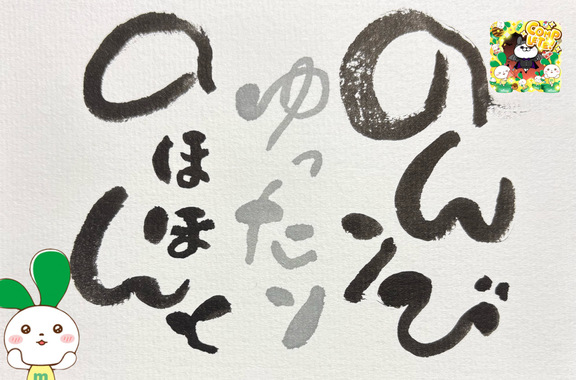 のんびり
ゆったり
のほほんと
COMP
LETE!
m